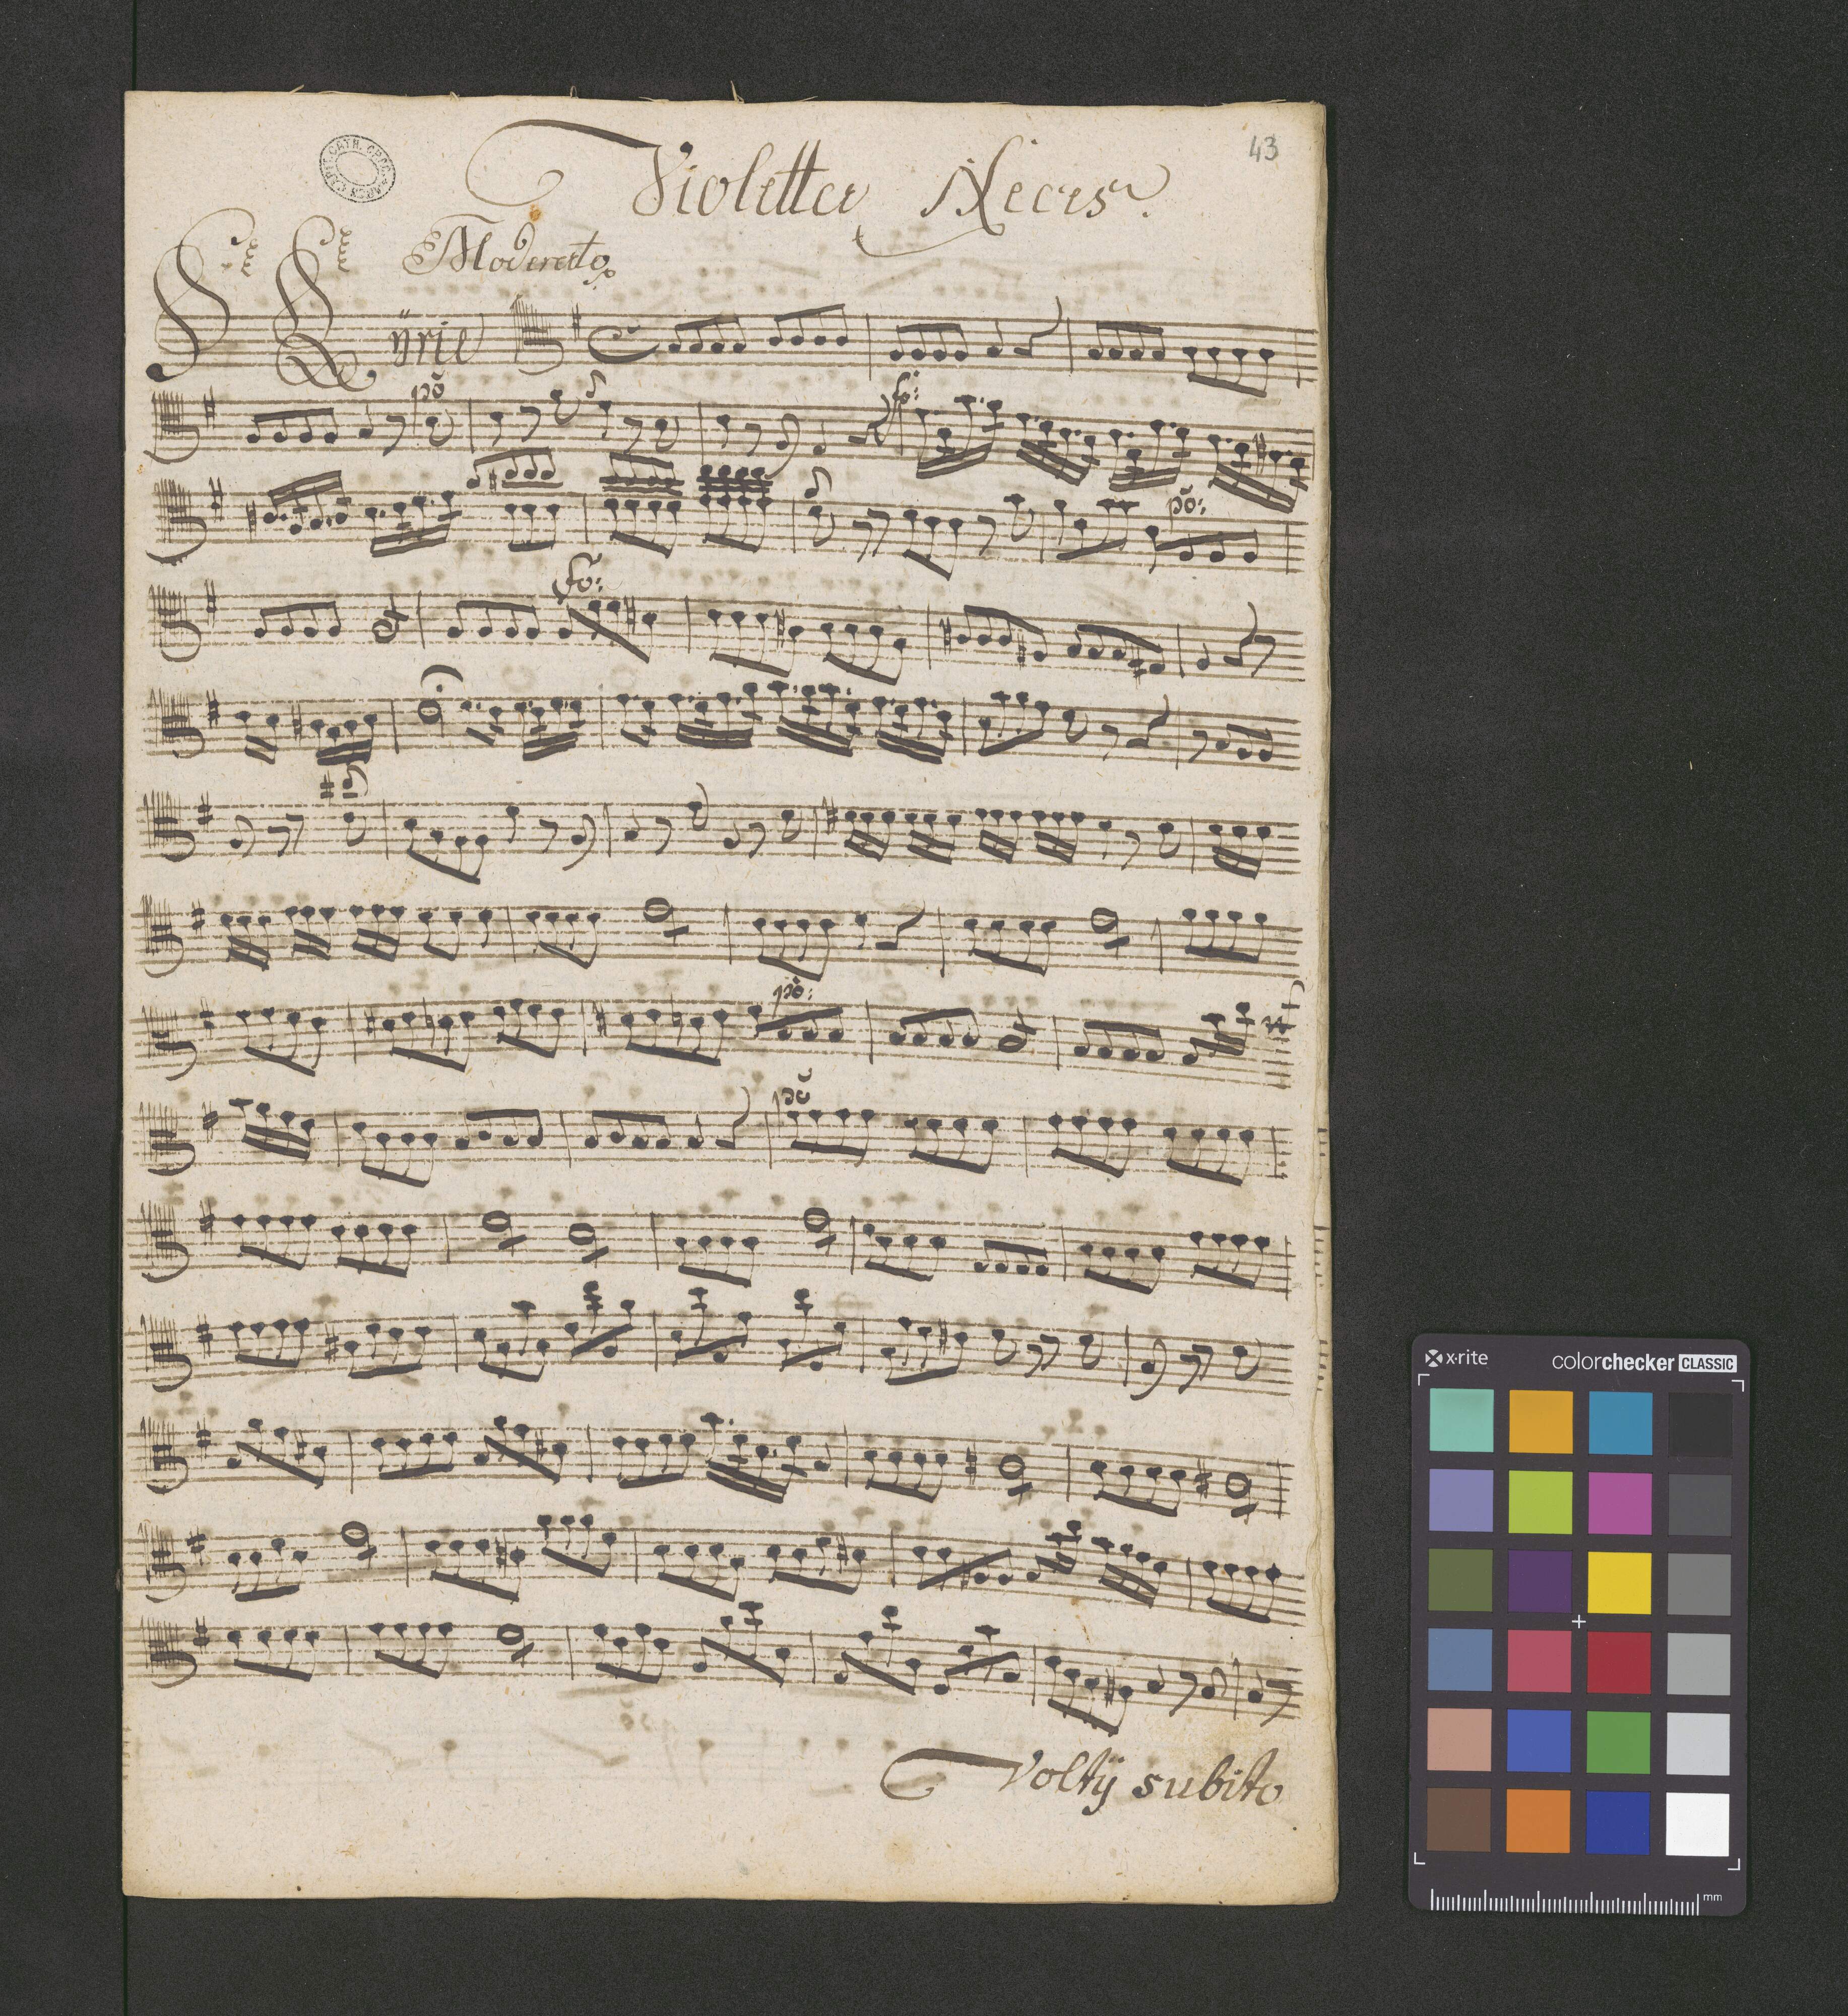 43
Violetta Neces:
Moderato
Kÿrie
põ
fo:
põ:
fo:
põ:
põ
Voltij subito
x-rite
colorchecker CLASSIC
mm